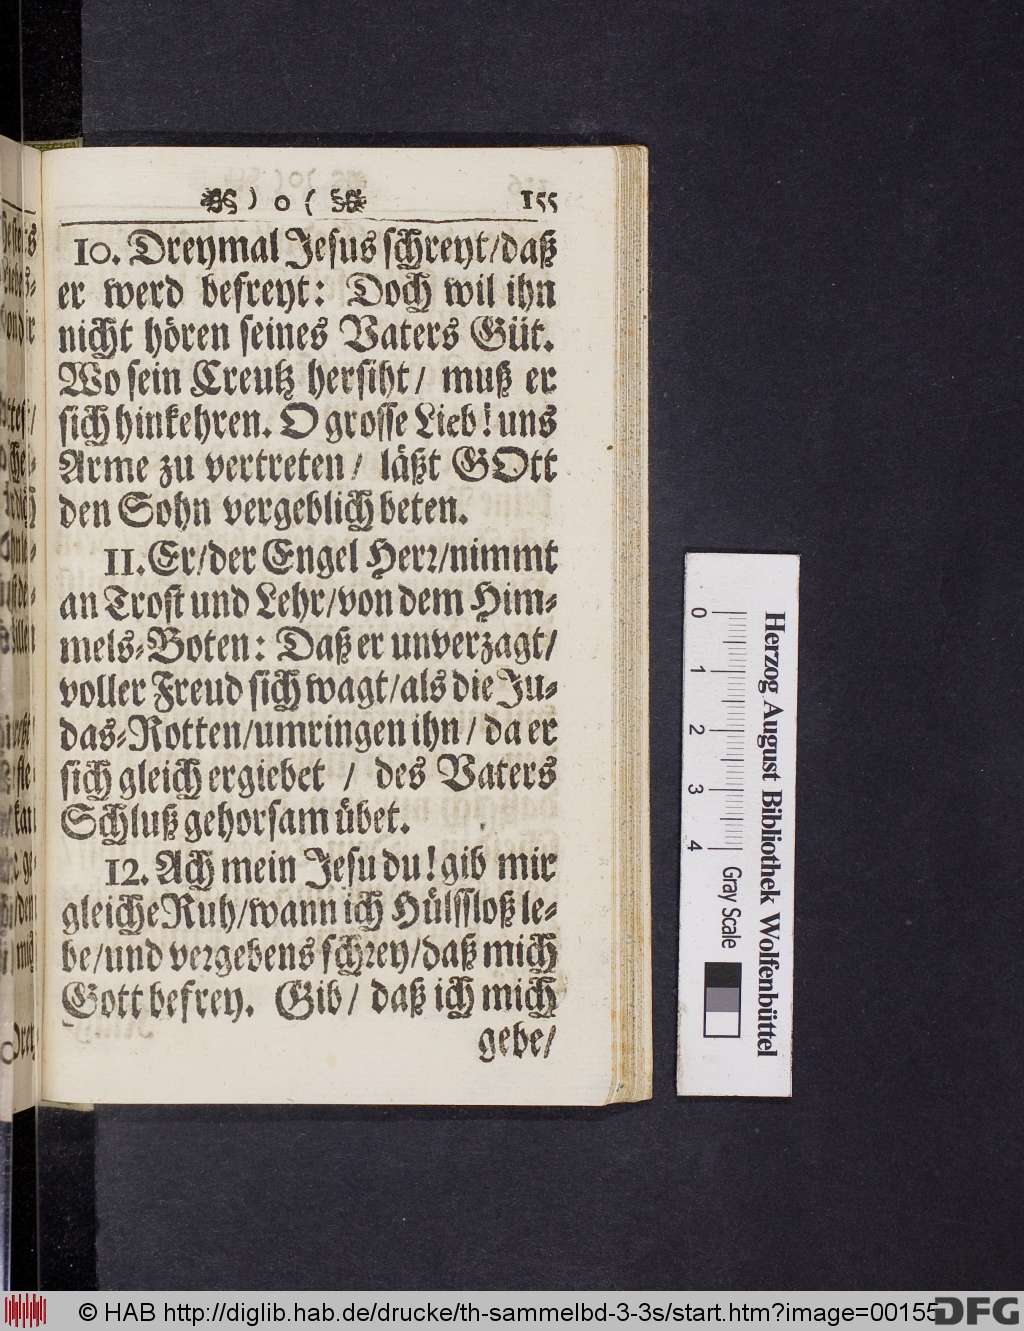 ) o ( 155
10. Dreymal Jesus schreyt/daß
er werd befreyt: Doch wil ihn
nicht hören seines Vaters Güt.
Wo sein Creutz hersiht/ muß er
sich hinkehren. O grosse Lieb! uns
Arme zu vertreten/ läßt GOtt
den Sohn vergeblich beten.
11. Er/der Engel Herr/nimmt
an Trost und Lehr/von dem Him-
mels-Boten: Daß er unverzagt/
voller Freud sich wagt/als die Ju-
das-Rotten/umringen ihn/ da er
sich gleich ergiebet / des Vaters
Schluß gehorsam übet.
12. Ach mein Jesu du! gib mir
gleiche Ruh/wann ich Hülffloß le-
be/und vergebens schrey/daß mich
Gott befrey. Gib/ daß ich mich
gebe/
0 1 2 3 4 Gray Scale
Herzog August Bibliothek Wolfenbüttel
© HAB http://diglib.hab.de/drucke/th-sammelbd-3-3s/start.htm?image=00155
DFG